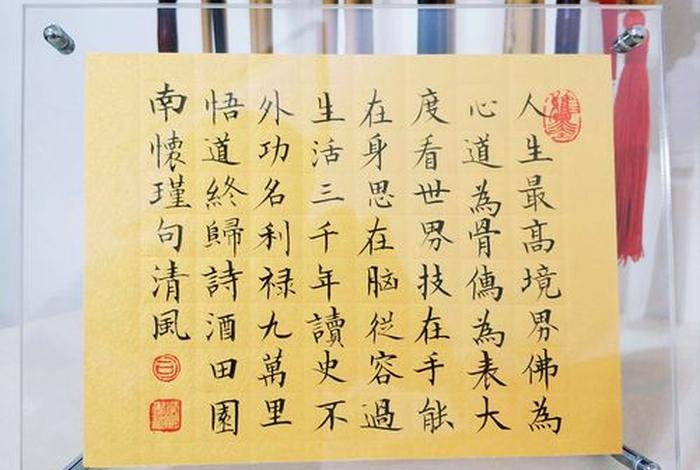 人生最高境界佛為
心道為骨儒為表大
度看世界技在手能
在身思在脑從容過
生活三千年讀史不
外功名利禄九萬里
悟道終歸詩酒田園
南懷瑾句清風